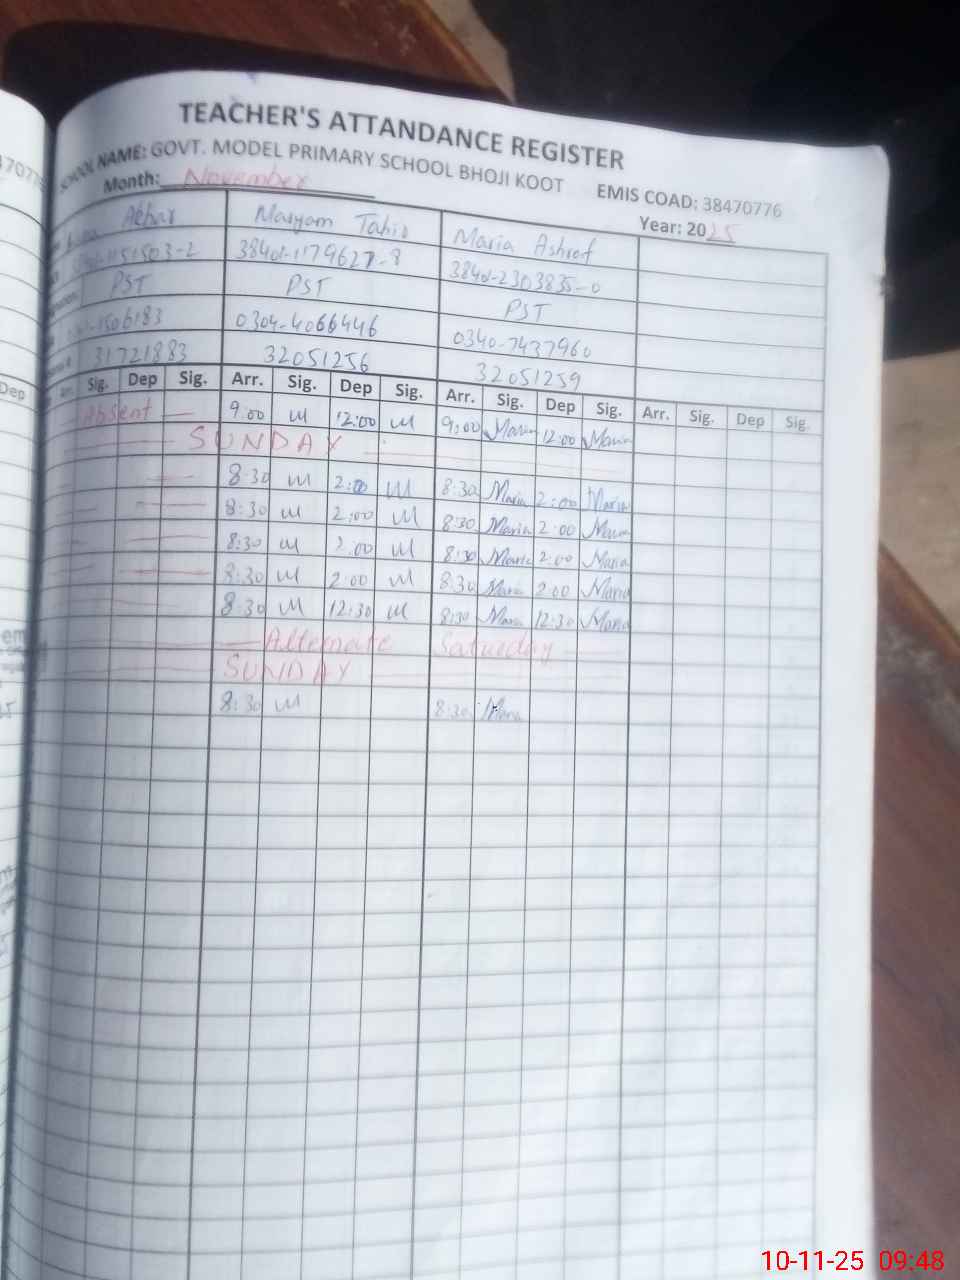 TEACHER'S ATTANDANCE REGISTER
SCHOOL NAME: GOVT. MODEL PRIMARY SCHOOL BHOJI KOOT EMIS COAD: 38470776
Month: November Year: 2025
Akbar Maryam Tahir Maria Ashraf
51503-2 38401-1179627-8 38401-2303835-0
PST PST PST
1506183 0304-4066446 0340-7437960
31721883 32051256 32051259
Arr. Sig. Dep Sig. Arr. Sig. Dep Sig. Arr. Sig. Dep Sig. Arr. Sig. Dep Sig.
Absent 9:00 M 12:00 M 9:00 Maria 12:00 Maria
SUNDAY
8:30 M 2:00 M 8:30 Maria 2:00 Maria
8:30 M 2:00 M 8:30 Maria 2:00 Maria
8:30 M 2:00 M 8:30 Maria 2:00 Maria
8:30 M 2:00 M 8:30 Maria 2:00 Maria
8:30 M 12:30 M 8:30 Maria 12:30 Maria
Alternate Saturday
SUNDAY
8:30 M 8:30 Maria
Dep
10-11-25 09:48